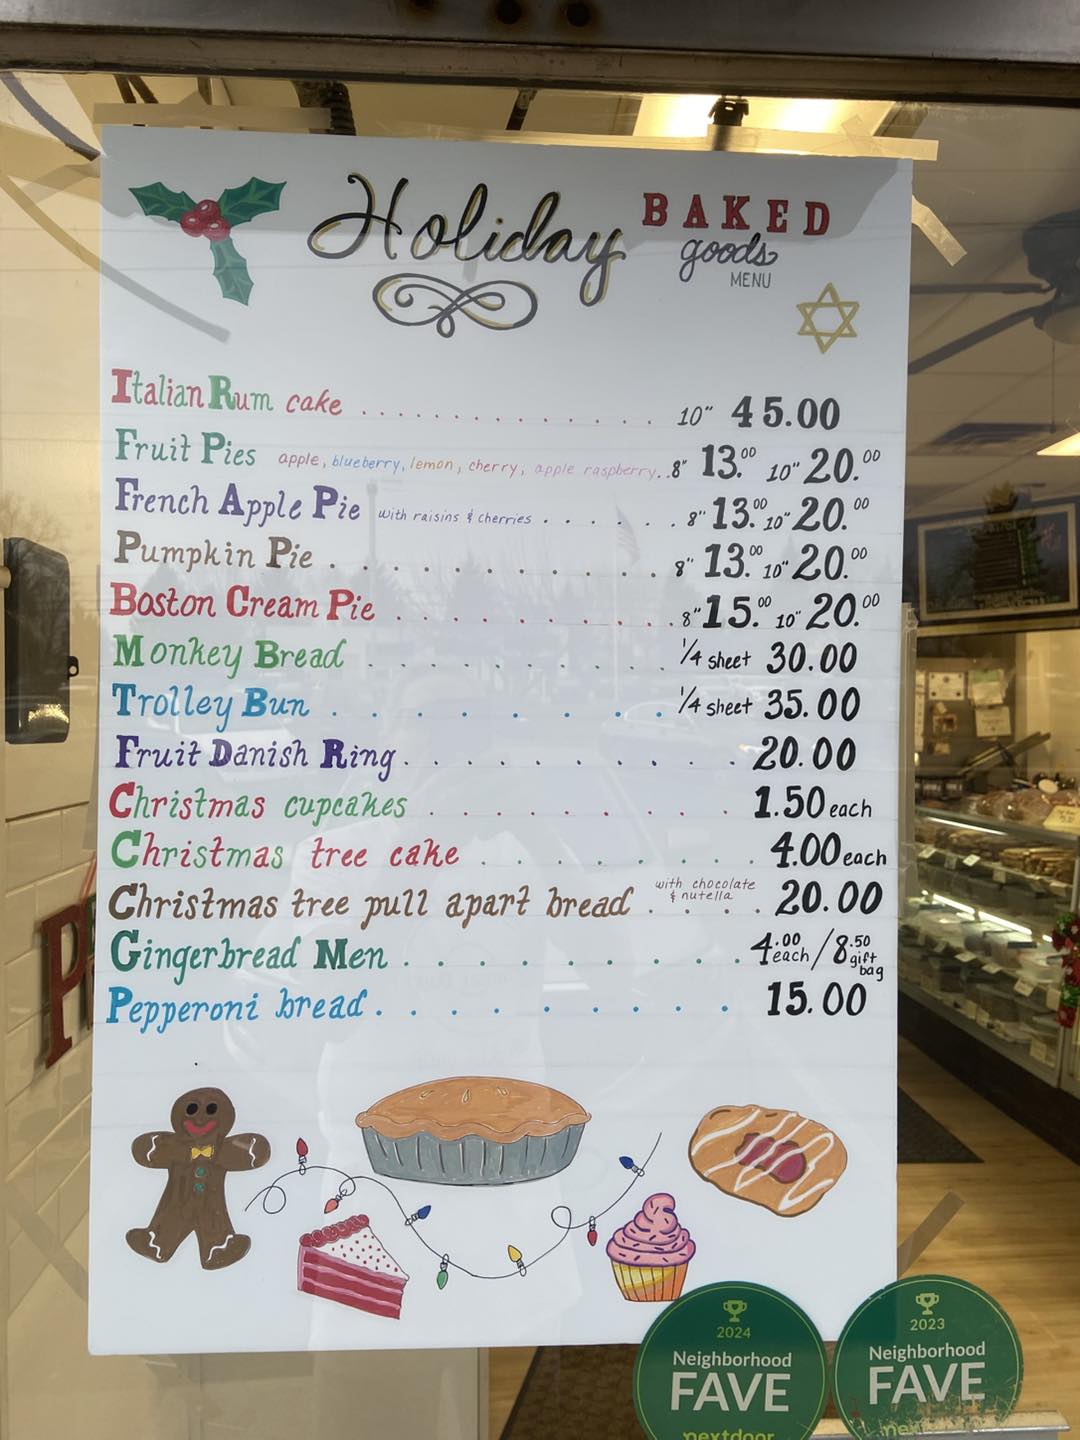 Holiday BAKED
goods
MENU
Italian Rum cake . . . . . . . . . . . . . 10" 45.00
Fruit Pies apple, blueberry, lemon, cherry, apple raspberry. . 8" 13.00 10" 20.00
French Apple Pie with raisins & cherries . . . . . . . 8" 13.00 10" 20.00
Pumpkin Pie . . . . . . . . . . . . 8" 13.00 10" 20.00
Boston Cream Pie . . . . . . . . . . . 8" 15.00 10" 20.00
Monkey Bread . . . . . . . . . . . 1/4 sheet 30.00
Trolley Bun . . . . . . . . 1/4 sheet 35.00
Fruit Danish Ring . . . . . . . . . . 20.00
Christmas cupcakes . . . . . . . . 1.50 each
Christmas tree cake . . . . . . . . 4.00 each
Christmas tree pull apart bread with chocolate & nutella . . . . 20.00
Gingerbread Men . . . . . . . . . . 4.00 each / 8.50 gift bag
Pepperoni bread . . . . . . . . . . 15.00
2024
Neighborhood
FAVE
nextdoor
2023
Neighborhood
FAVE